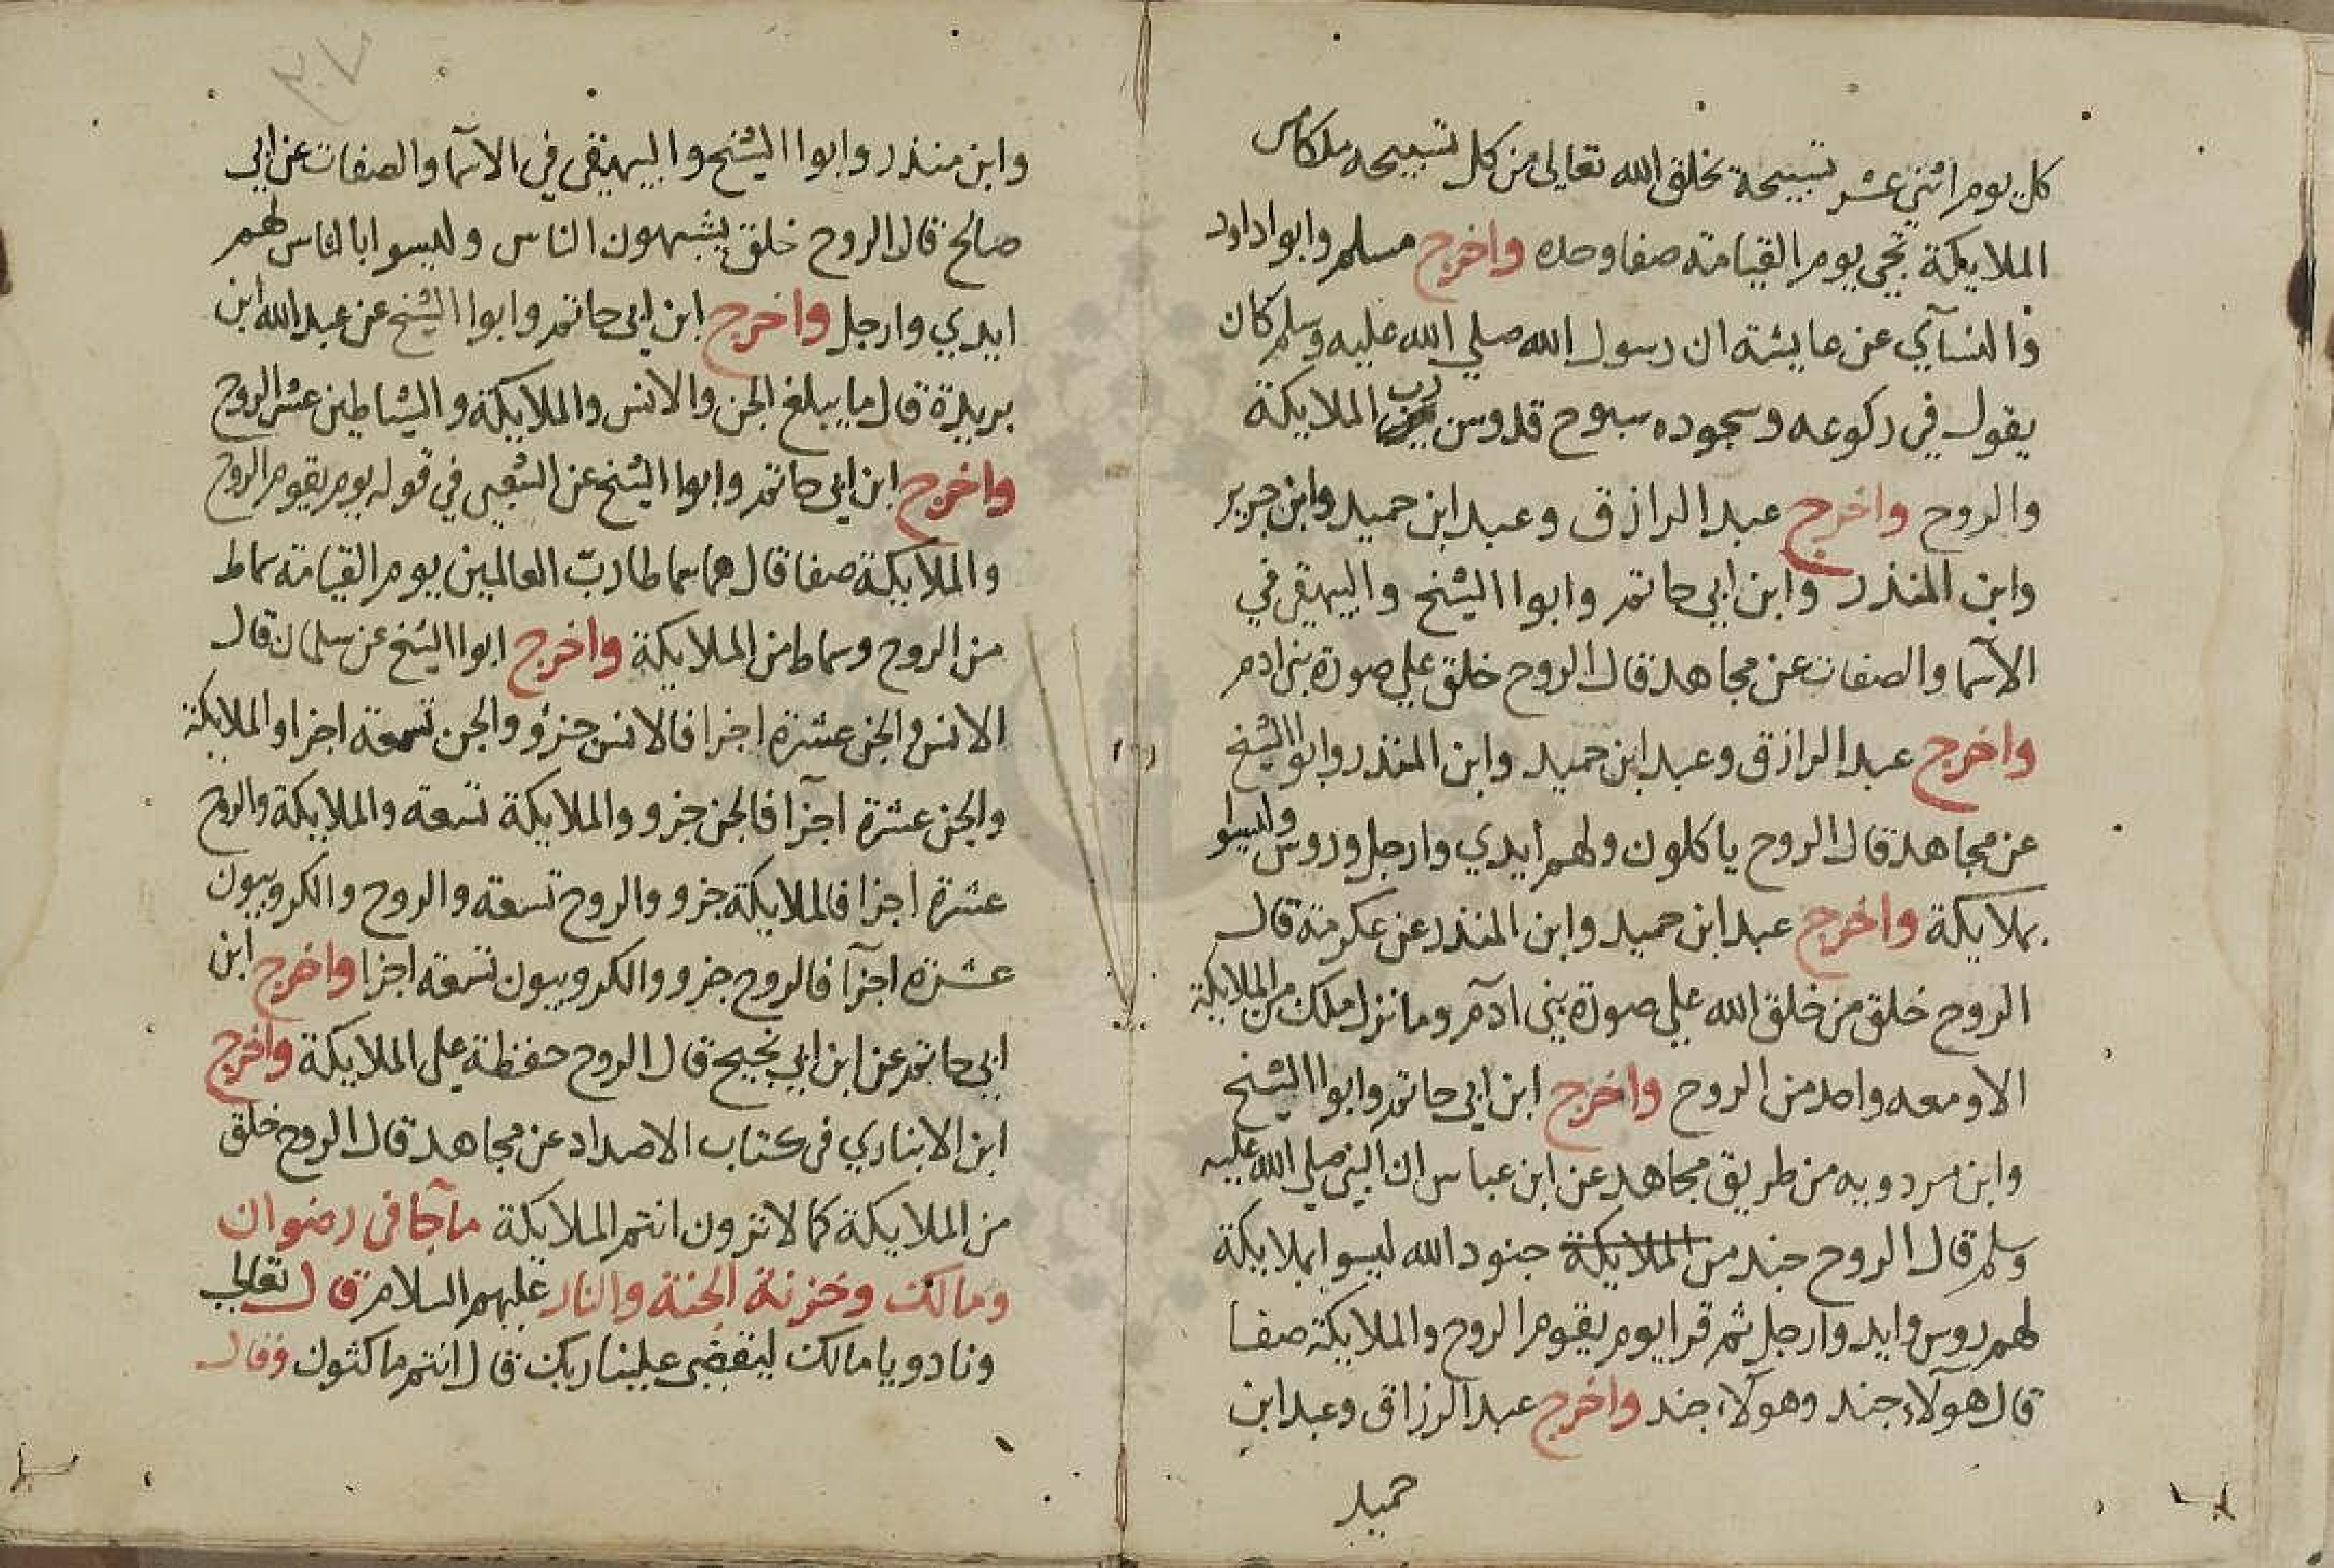 كل يوم اثني عشر تسبيحة يخلق الله تعالى من كل تسبيحه ملكا من
الملايكة تجي يوم القيامة صفا وحده واخرج مسلم وابوا داود
والنسآي عن عايشة ان رسول الله صلي الله عليه وسلم كان
يقول في ركوعه وسجوده سبوح قدوس رب الملايكة
والروح واخرج عبد الرازق وعبد ابن حميد وابن جرير
وابن المنذر وابن ابي حاتم وابوا الشيخ والبيهقي في
الاسما والصفات عن مجاهد قال الروح خلق علي صورة بني ادم
واخرج عبد الرازق وعبد ابن حميد وابن المنذر وابوا الشيخ
عن مجاهد قال الروح ياكلون ولهم ايدي وارجل وروس وليسوا
بملايكة واخرج عبد ابن حميد وابن المنذر عن عكرمة قال
الروح خلق من خلق الله علي صورة بني ادم وما نزل ملك من الملايكة
الا ومعه واحد من الروح واخرج ابن ابي حاتم وابوا الشيخ
وابن مردويه من طريق مجاهد عن ابن عباس ان النبي صلي الله عليه
وسلم قال الروح جند من الملايكة جنود الله ليسوا بملايكة
لهم روس وايد وارجل ثم قرا يوم يقوم الروح والملايكة صفا
قال هولاء جند وهولاء جند واخرج عبد الرزاق وعبد ابن
حميد
٣٠٧
وابن منذر وابوا الشيخ والبيهقي في الاسما والصفات عن ابي
صالح قال الروح خلق يشبهون الناس وليسوا بالناس لهم
ايدي وارجل واخرج ابن ابي حاتم وابوا الشيخ عن عبد الله ابن
بريدة قال ما يبلغ الجن والانس والملايكة والشياطين عشر الروح
واخرج ابن ابي حاتم وابوا الشيخ عن الشعبي في قوله يوم يقوم الروح
والملايكة صفا قال هما سماطا رب العالمين يوم القيامة سماط
من الروح وسماط من الملايكة واخرج ابوا الشيخ عن سلمان قال
الانس والجن عشرة اجزا فالانس جزؤ والجن تسعة اجزا والملايكة
والجن عشرة اجزآ فالجن جزو والملايكة تسعه والملايكة والروح
عشرة اجزا فالملايكة جزو والروح تسعة والروح والكروبيون
عشرة اجزآ فالروح جزو والكروبيون تسعة اجزا واخرج ابن
ابي حاتم عن ابن ابي نجيح قال الروح حفظة على الملايكة واخرج
ابن الانباري في كتاب الاضداد عن مجاهد قال الروح خلق
من الملايكة كما لا ترون انتم الملايكة ما جآ في رضوان
ومالك وخزنة الجنة والنار عليهم السلام قال تعالي
ونادو يا مالك ليقضي علينا ربك قال انتم ماكثون وقال